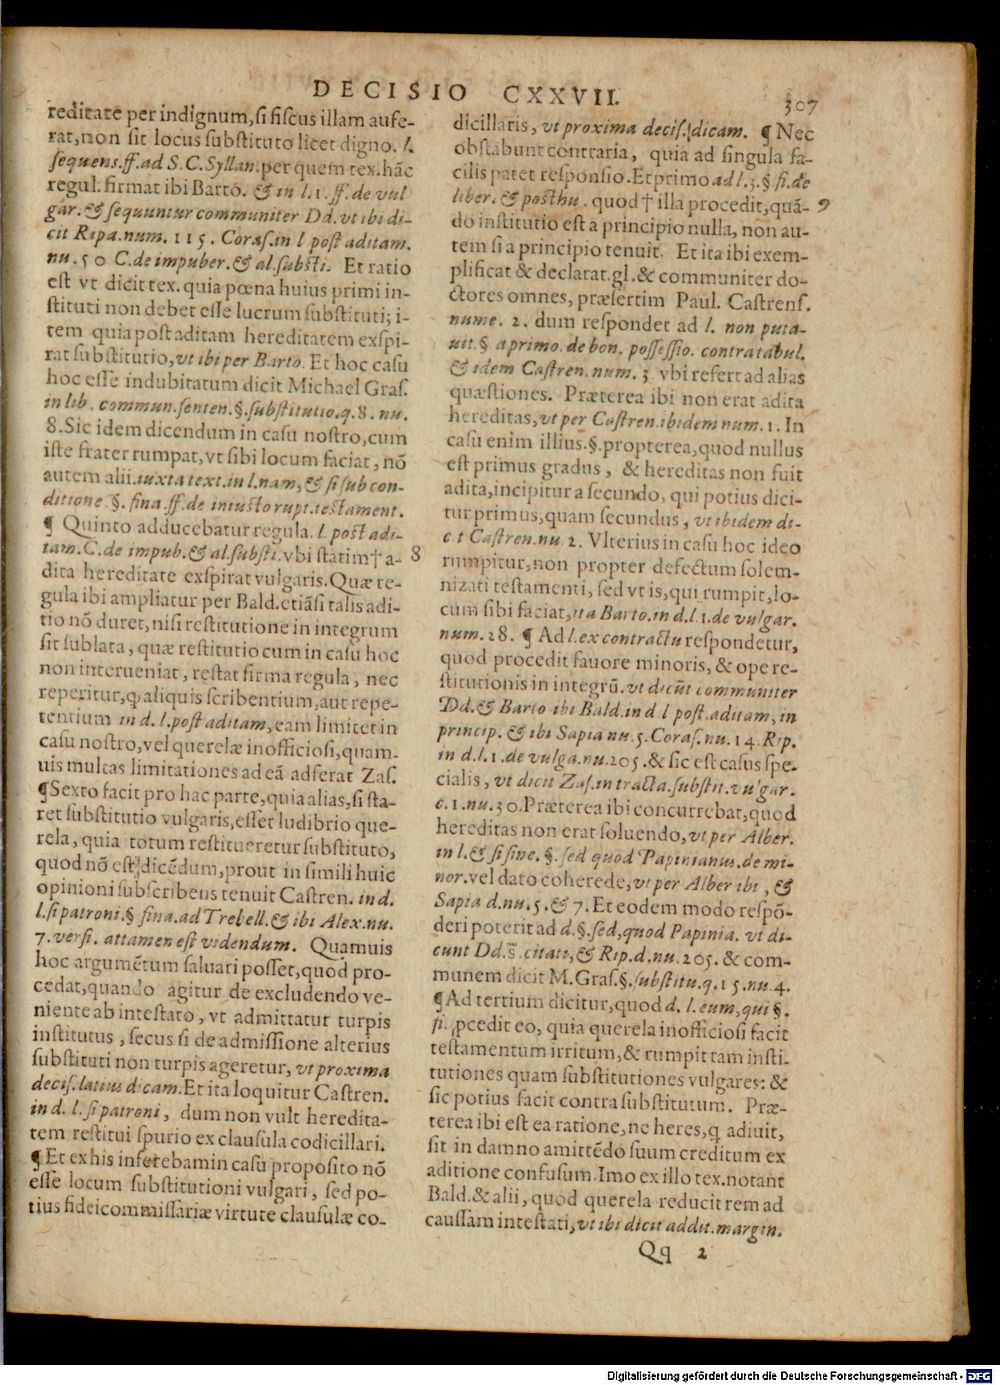 DECISIO CXXVII. 307
reditate per indignum, si fiscus illam aufe-
rat, non sit locus substituto licet digno. l.
sequens. ff. ad S. C. Syllan. per quem tex. hāc
regul. firmat ibi Barto. & in l. 1. ff. de vul
gar. & sequuntur communiter Dd. vt ibi di-
cit Ripa. num. 115. Coras. in l post aditam.
nu. 50 C. de impuber. & al. substi. Et ratio
est vt dicit tex. quia pœna huius primi in-
stituti non debet esse lucrum substituti; i-
tem quia post aditam hereditatem exspi-
rat substitutio, vt ibi per Barto. Et hoc casu
hoc esse indubitatum dicit Michael Gras.
in lib. commun. senten. §. substitutio. q. 8. nu.
8. Sic idem dicendum in casu nostro, cum
iste frater rumpat, vt sibi locum faciat, nō
autem alii. iuxta text. in l. nam, & si sub con-
ditione §. fina. ff. de iniusto rupt. testament.
¶ Quinto adducebatur regula. l. post adi-
tam. C. de impub. & al. substi. vbi statim † a- 8
dita hereditate exspirat vulgaris. Quæ re-
gula ibi ampliatur per Bald. etiāsi talis adi-
tio nō duret, nisi restitutione in integrum
sit sublata, quæ restitutio cum in casu hoc
non interueniat, restat firma regula, nec
reperitur, ꝙ aliquis scribentium, aut repe-
tentium in d. l. post aditam, eam limitet in
casu nostro, vel querelæ inofficiosi, quam-
uis multas limitationes ad eā adferat Zas.
¶ Sexto facit pro hac parte, quia alias, si sta-
ret substitutio vulgaris, esset ludibrio que-
rela, quia totum restitueretur substituto,
quod nō est dicēdum, prout in simili huic
opinioni subscribens tenuit Castren. in d.
l. si patroni. § fina. ad Trebell. & ibi Alex. nu.
7. versi. attamen est videndum. Quamuis
hoc argumētum saluari posset, quod pro-
cedat, quando agitur de excludendo ve-
niente ab intestato, vt admittatur turpis
institutus, secus si de admissione alterius
substituti non turpis ageretur, vt proxima
decis. latius dicam. Et ita loquitur Castren.
in d. l. si patroni, dum non vult heredita-
tem restitui spurio ex clausula codicillari.
¶ Et ex his inferebam in casu proposito nō
esse locum substitutioni vulgari, sed po-
tius fideicommissariæ virtute clausulæ co-
dicillaris, vt proxima decis. dicam. ¶ Nec
obstabunt contraria, quia ad singula fa-
cilis patet responsio. Et primo ad l. 3. § fi. de
liber. & posthu. quod † illa procedit, quā- 9
do institutio est a principio nulla, non au-
tem si a principio tenuit. Et ita ibi exem-
plificat & declarat. gl. & communiter do-
ctores omnes, præsertim Paul. Castrens.
nume. 2. dum respondet ad l. non puta-
uit. § a primo. de bon. possessio. contra tabul.
& idem Castren. num. 3 vbi refert ad alias
quæstiones. Præterea ibi non erat adita
hereditas, vt per Castren. ibidem num. 1. In
casu enim illius. §. propterea, quod nullus
est primus gradus, & hereditas non fuit
adita, incipitur a secundo, qui potius dici-
tur primus, quam secundus, vt ibidem di-
c t Castren. nu. 2. Vlterius in casu hoc ideo
rumpitur, non propter defectum solem-
nizati testamenti, sed vt is, qui rumpit, lo-
cum sibi faciat, ita Barto. in d. l. 1. de vulgar.
num. 28. ¶ Ad l. ex contractu respondetur,
quod procedit fauore minoris, & ope re-
stitutionis in integrū. vt dicūt communiter
Dd. & Barto ibi Bald. in d l post. aditam, in
princip. & ibi Sapia nu. 5. Coras. nu. 14. Rip.
in d. l. 1. de vulga. nu. 205. & sic est casus spe-
cialis, vt dicit Zas. in tracta. substit. vulgar.
c. 1. nu. 30. Præterea ibi concurrebat, quod
hereditas non erat soluendo, vt per Alber.
in l. & si sine. §. sed quod Papinianus. de mi-
nor. vel dato coherede, vt per Alber ibi, &
Sapia d. nu. 5. & 7. Et eodem modo respō-
deri poterit ad d. §. sed, quod Papinia. vt di-
cunt Dd. s̄ citati, & Rip. d. nu. 205. & com-
munem dicit M. Gras. §. substitu. q. 15. nu. 4.
¶ Ad tertium dicitur, quod d. l. eum, qui §.
fi. ꝓcedit eo, quia querela inofficiosi facit
testamentum irritum, & rumpit tam insti-
tutiones quam substitutiones vulgares: &
sic potius facit contra substitutum. Præ-
terea ibi est ea ratione, ne heres, q adiuit,
sit in damno amittēdo suum creditum ex
aditione confusum. Imo ex illo tex. notant
Bald. & alii, quod querela reducit rem ad
caussam intestati, vt ibi dicit addit. margin.
Qq 2
Digitalisierung gefördert durch die Deutsche Forschungsgemeinschaft - DFG